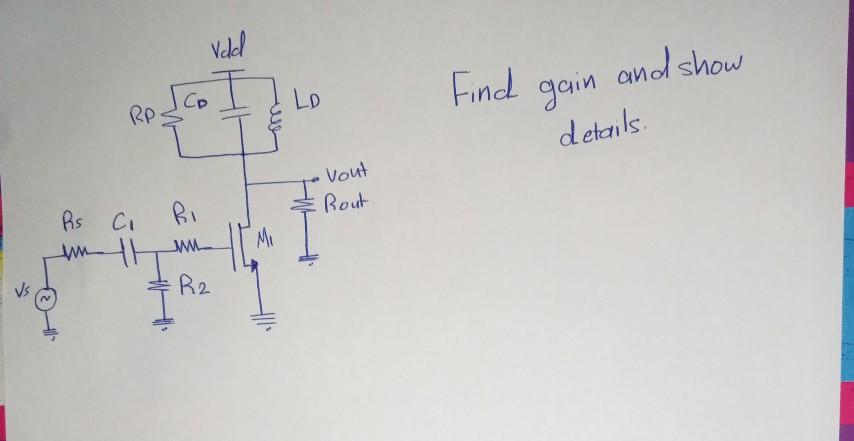 Vdd
RD
CD
LD
Find gain and show
details.
Vout
Rout
Rs
C1
R1
M1
Vs
R2